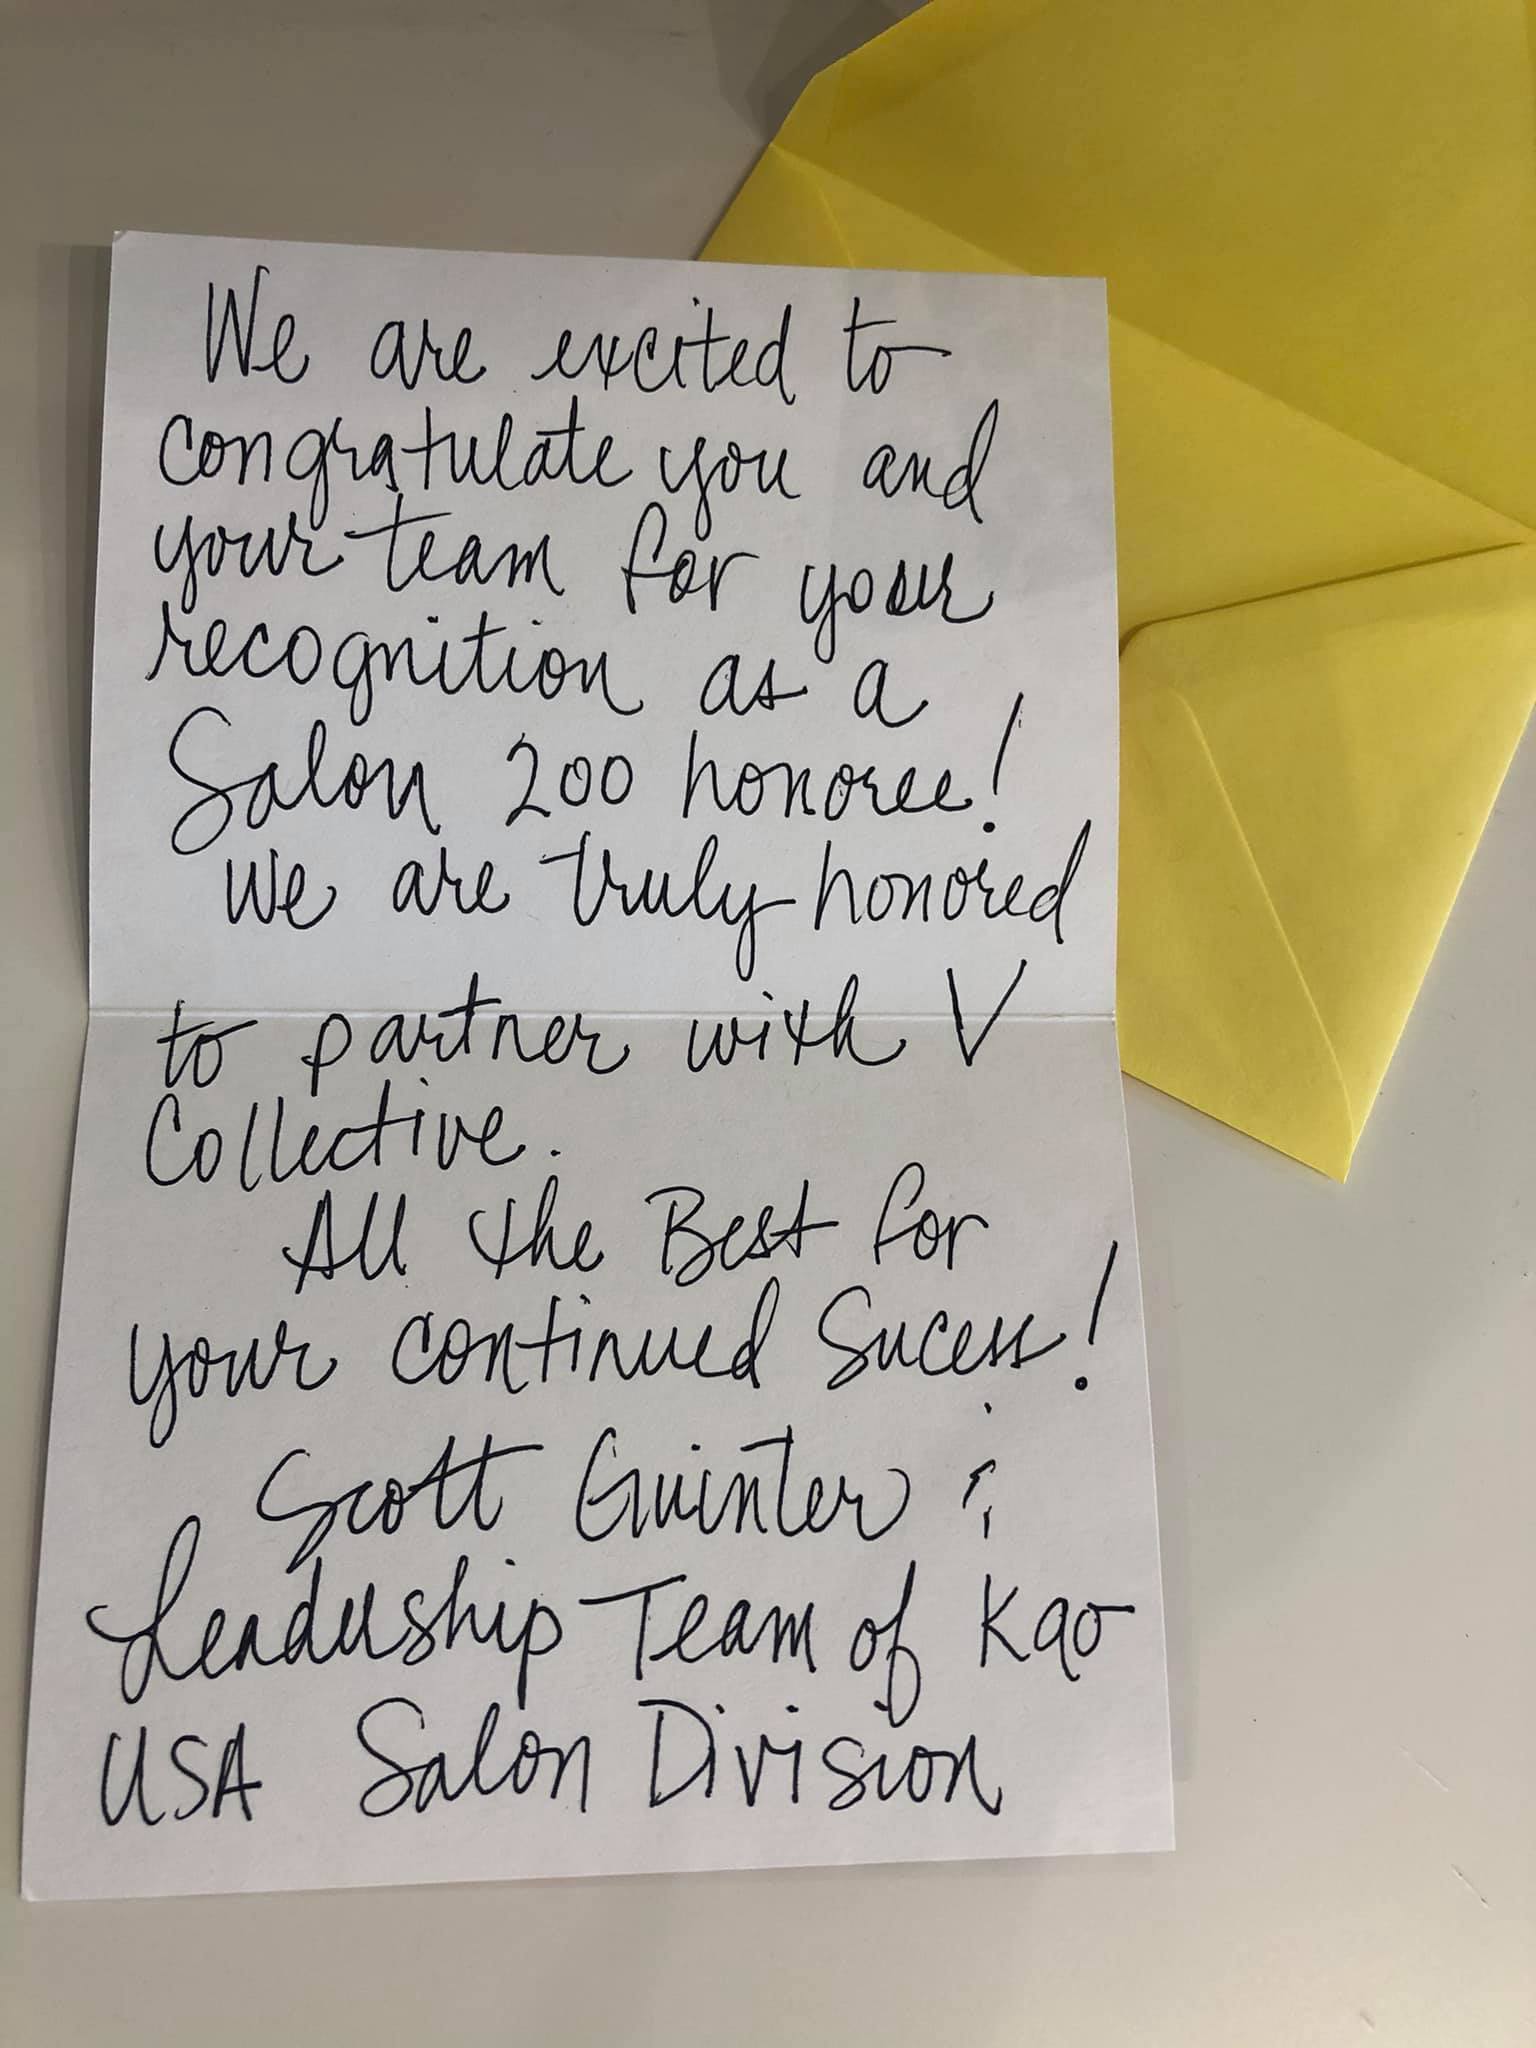 We are excited to
congratulate you and
your team for your
recognition as a
Salon 200 honoree!
We are truly honored
to partner with V
Collective.
All the Best for
your continued Sucess!
Scott Guinter &
Leadership Team of Kao
USA Salon Division